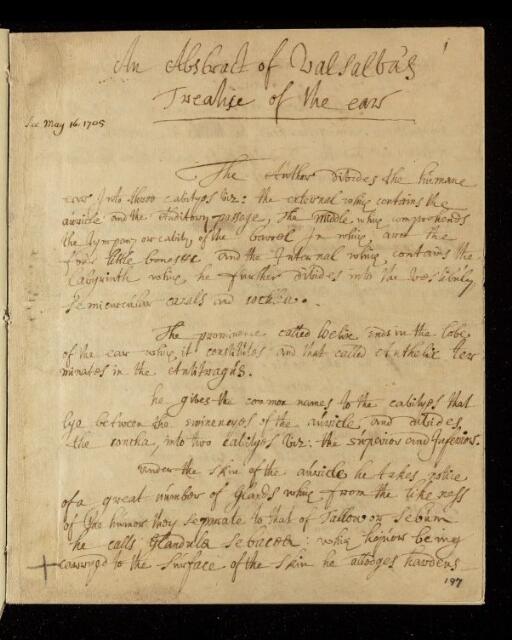 An Abstract of Valsalva's
Treatise of the ear
See May 16. 1705
The Author divides the humane
ear Into three cavityes viz: the external which contains the
auricle and the Auditory passage, the middle which comprehends
the tympany or cavity of the barrel In which are the
four little bones and the Internal which contains the
Labyrinth which he further divides into the Vestibule
Semicircular canals and cochlea.
The prominence called helix ends in the lobe
of the ear which it constitutes and that called Anthelix ter
minates in the Antitragus.
he gives the common names to the cavityes that
lye between the eminencyes of the auricle, and divides
the concha, into two cavityes viz: the superior and Inferior.
Under the skin of the auricle he takes notice
of a great number of Glands which from the likeness
of the humor they separate to that of Tallow or Sebum
he calls Glandulæ Sebaceæ: which humor being
carryed to the surface of the skin he alledges hardens
197